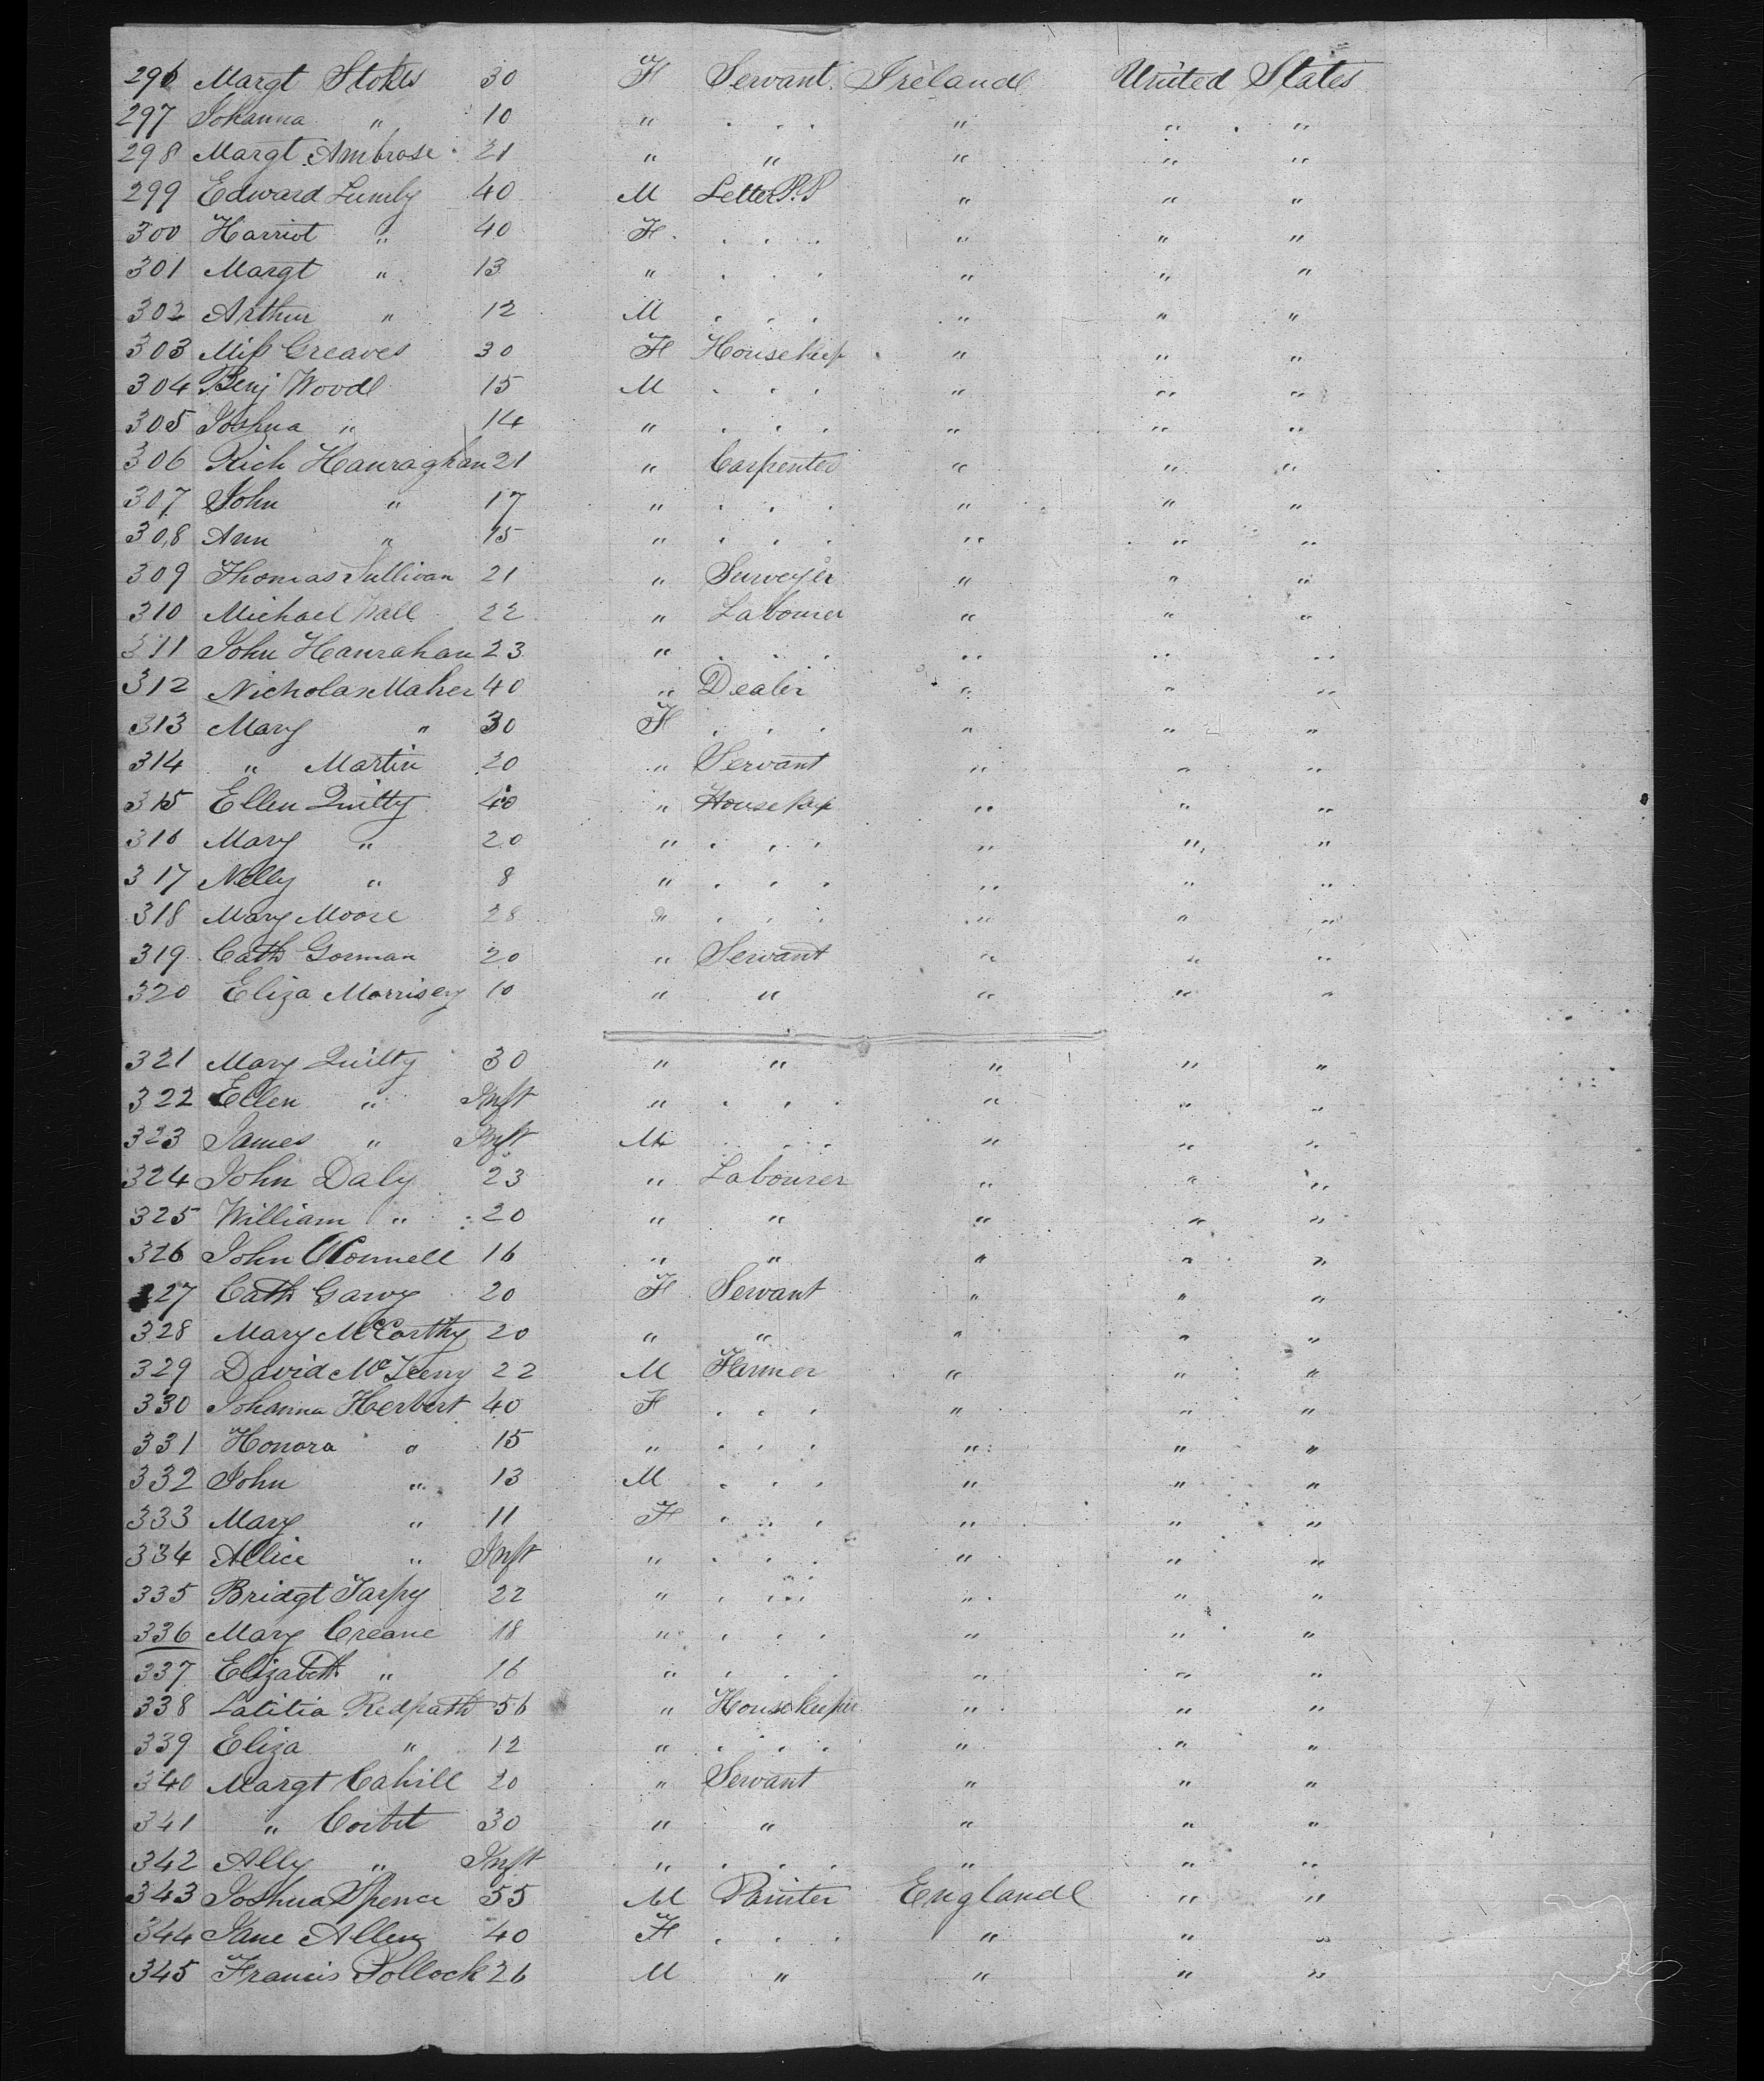 296 Margt Stokes 30 F Servant Ireland United States
297 Johanna " 10 " . . . " " "
298 Margt Ambrose 21 " " " " "
299 Edward Lumly 40 M Letter P.P " " "
300 Harriot " 40 F . . . " " "
301 Margt " 13 " . . . " " "
302 Arthur " 12 M . . . " " "
303 Miss Greaves 30 F Housekeep " " "
304 Benj Wood 15 M . . . " " "
305 Joshua " 14 " . . . " " "
306 Rich Hanraghan 21 " Carpenter " " "
307 John " 17 " . . . " " "
308 Ann " 15 " . . . " " "
309 Thomas Sullivan 21 " Surveyer " " "
310 Michael Wall 22 " Labourer " " "
311 John Hanrahan 23 " . . . " " "
312 Nicholas Maher 40 " Dealer " " "
313 Mary " 30 F . . . " " "
314 " Martin 20 " Servant " " "
315 Ellen Quilty 40 " Housekep " " "
316 Mary " 20 " . . . " " "
317 Nelly " 8 " . . . " " "
318 Mary Moore 28 " . . . " " "
319 Cath Gorman 20 " Servant " " "
320 Eliza Morrisey 10 " " " " "
321 Mary Quilty 30 " " " " "
322 Ellen " Inft " . . . " " "
323 James " Inft M . . . " " "
324 John Daly 23 " Labourer " " "
325 William " 20 " " " " "
326 John OConnell 16 " " " " "
327 Cath Garvy 20 F Servant " " "
328 Mary McCarthy 20 " " " " "
329 David Mc 22 M Farmer " " "
330 Johanna Herbert 40 F . . . " " "
331 Honora " 15 " . . . " " "
332 John " 13 M . . . " " "
333 Mary " 11 F . . . " " "
334 Allice " Inft " . . . " " "
335 Bridgt Tarpy 22 " . . . " " "
336 Mary Creane 18 " . . . " " "
337 Elizabeth " 16 " . . . " " "
338 Latitia Redpath 56 " Housekeeper " " "
339 Eliza " 12 " . . . " " "
340 Margt Cahill 20 " Servant " " "
341 " Corbet 30 " " " " "
342 Ally " Inft " . . . " " "
343 Joshua Spence 55 M Painter England " "
344 Jane Allen 40 F . . . " " "
345 Francis Pollock 26 M " " " "